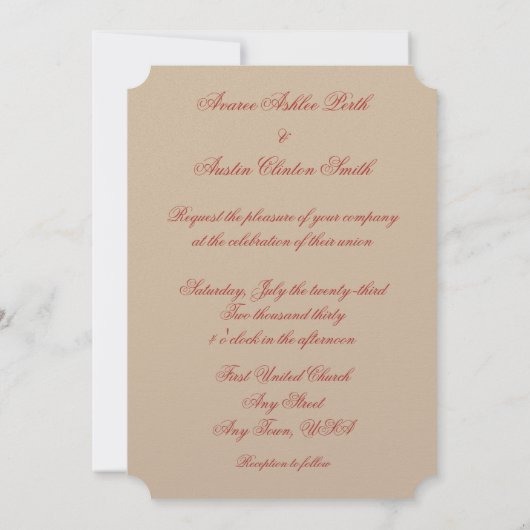 Avaree Ashlee Perth
&
Austin Clinton Smith
Request the pleasure of your company
at the celebration of their union
Saturday, July the twenty-third
Two thousand thirty
o'clock in the afternoon
First United Church
Any Street
Any Town, USA
Reception to follow